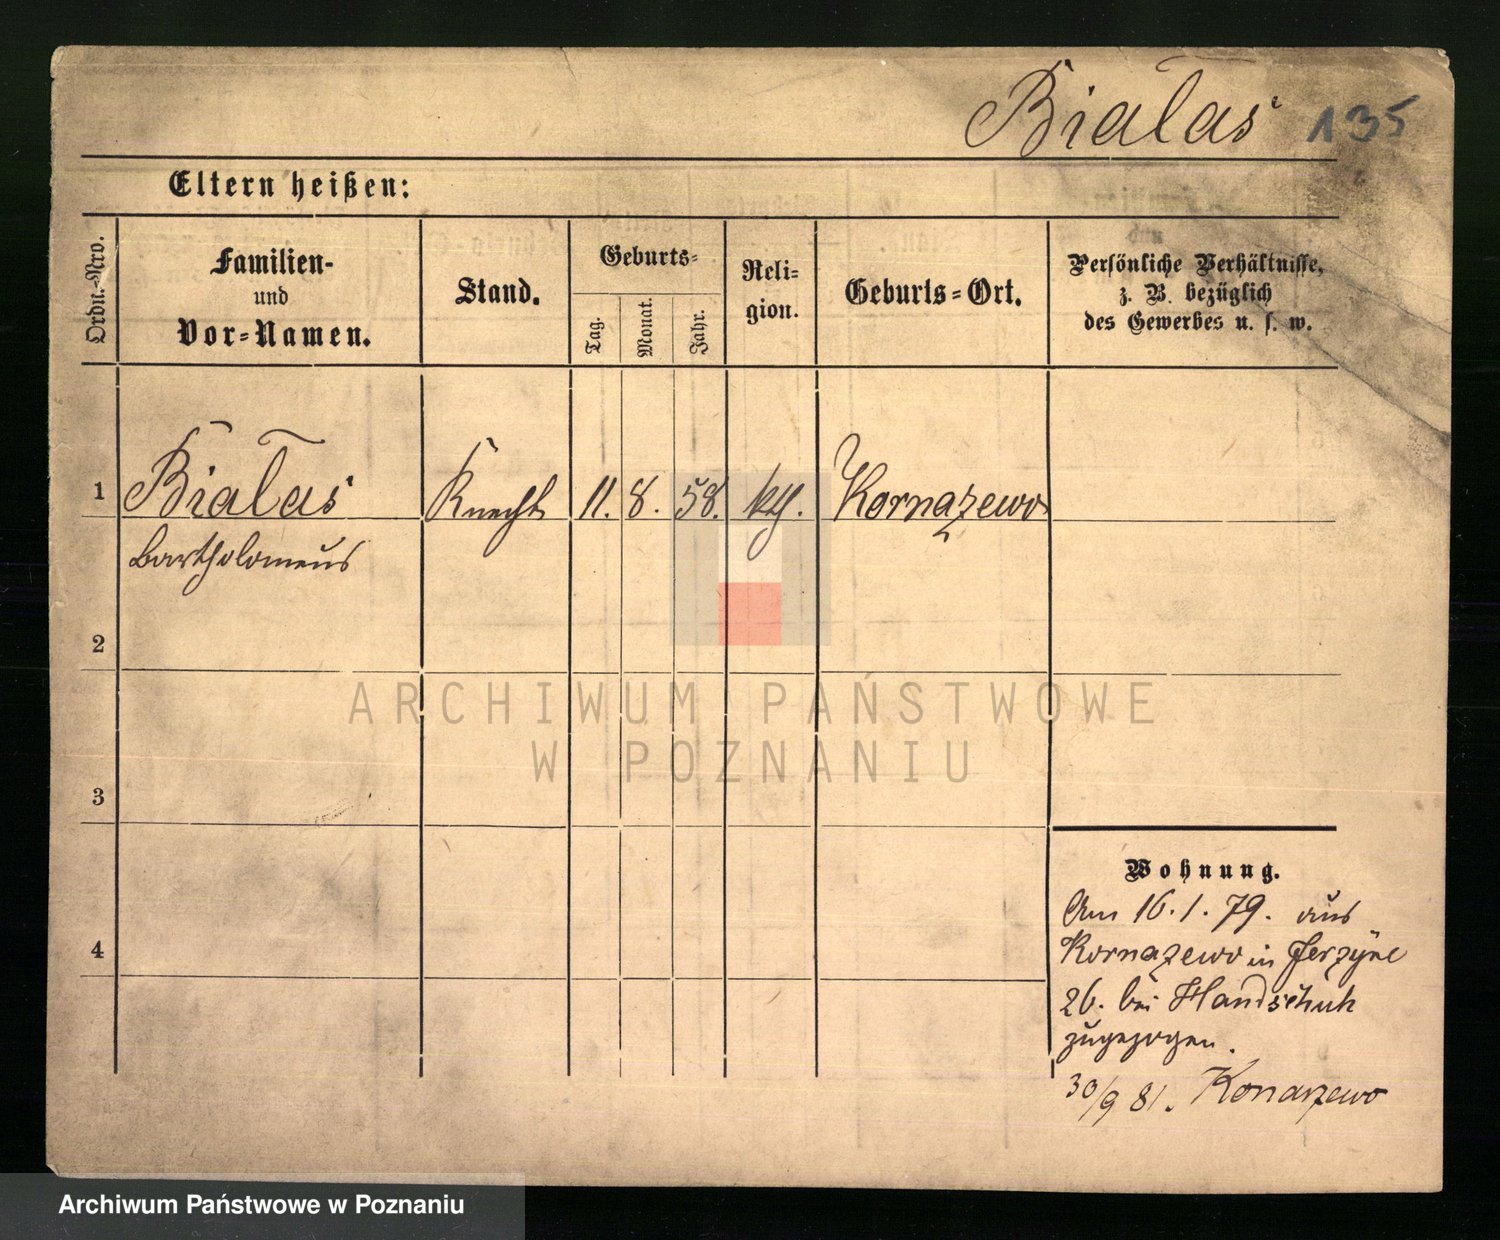 Białas 135
Eltern heißen:
Ordn.-Nro.
Familien-
und
Vor-Namen.
Stand.
Geburts-
Tag.
Monat.
Jahr.
Reli-
gion.
Geburts-Ort.
Persönliche Verhältnisse,
z. B. bezüglich
des Gewerbes u. s. w.
1 Białas Knecht 11. 8. 58. kth. Kornazewo
Bartholomeus
2
3
4
Wohnung.
Am 16.1.79. aus
Kornazewo in Jerzyce
26. bei Handschuh
zugezogen.
30/9 81. Konarzewo
ARCHIWUM PAŃSTWOWE
W POZNANIU
Archiwum Państwowe w Poznaniu